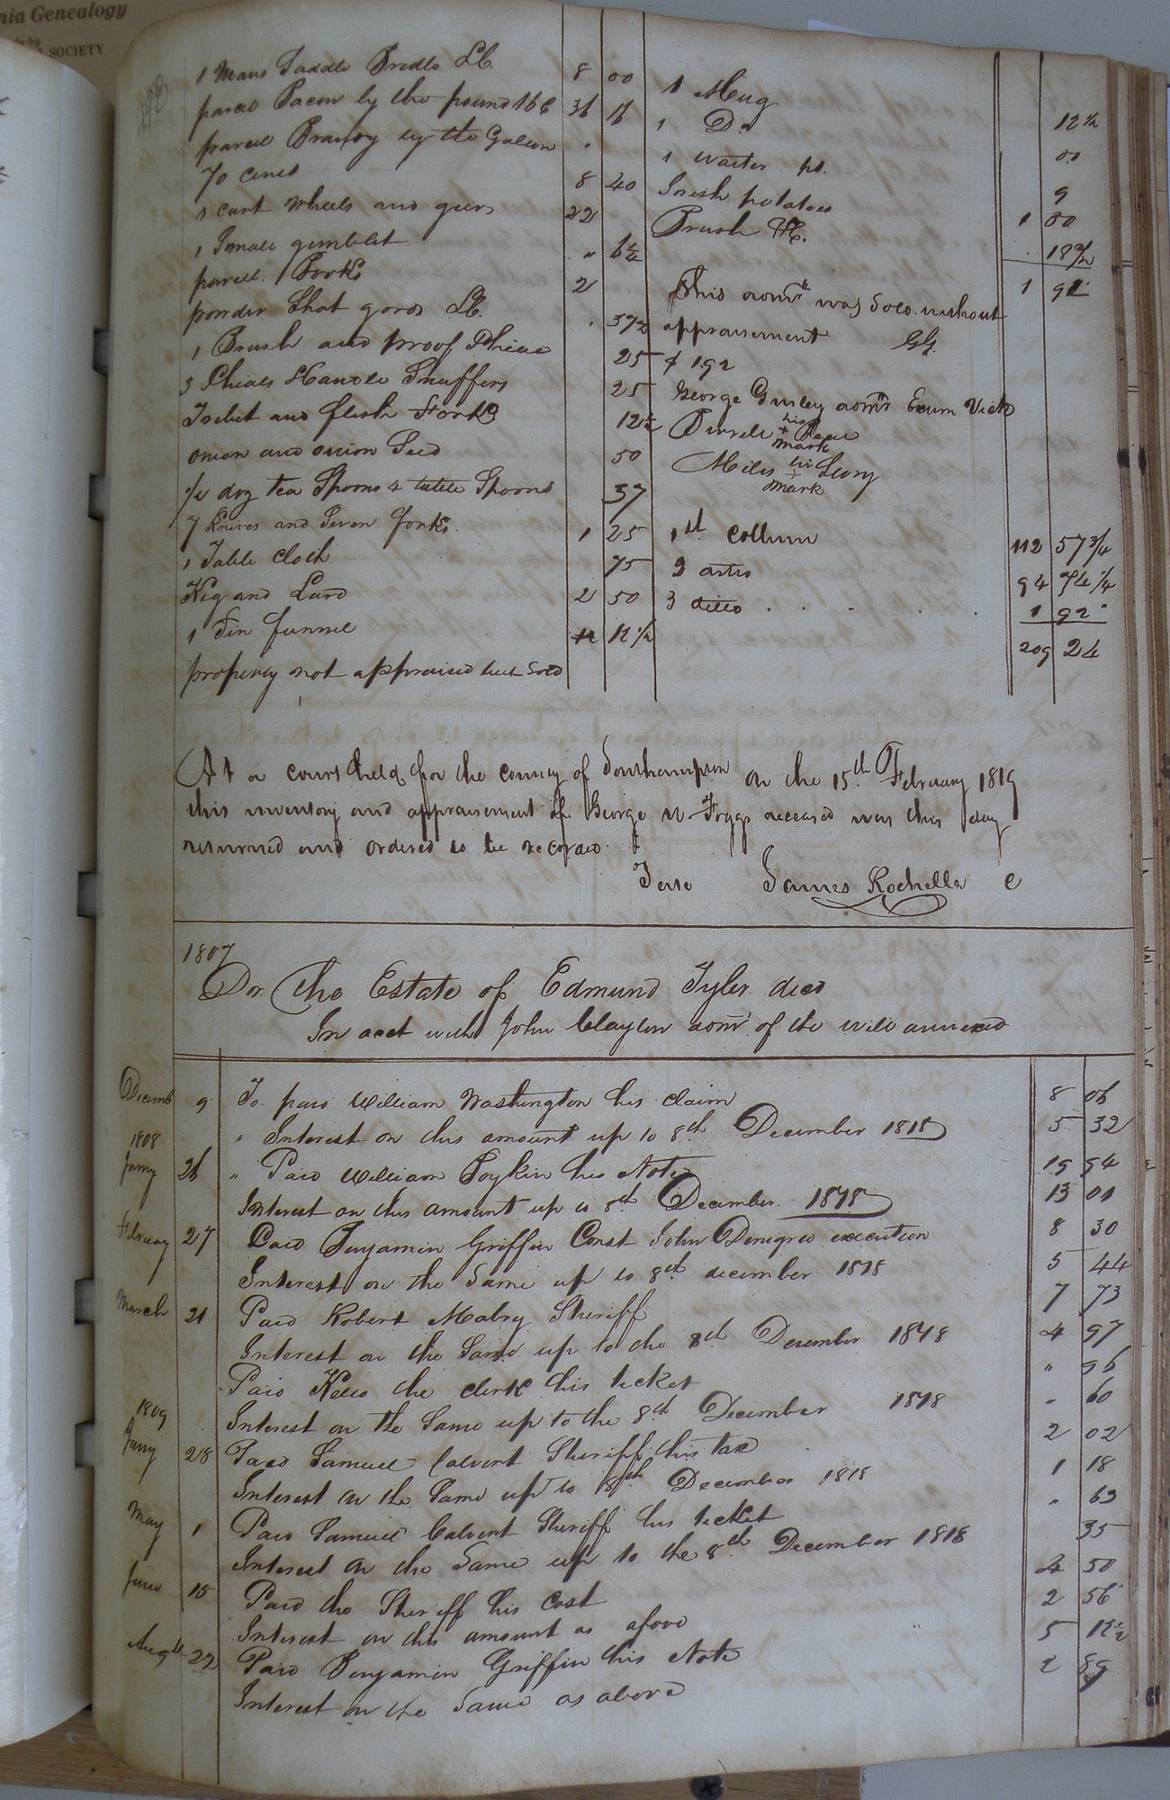 nia Genealogy
SOCIETY
1 Mans Saddle Bredle &c. 8 00
parcel Bacon by the pound 16 C 36 16
parcel Brandy by the Gallon "
70 cines 8 40
1 cart wheels and geers 22
1 Small gimblet " 6 1/4
parcell Books 2
powder Shot gords &c. . 37 1/2
1 Brush and proof Phial 25
3 Phials Handle Snuffers 25
Isebet and flesh Forks 12 1/2
onion and onion Seed 50
1/2 doz tea Spoons & table Spoons 37
7 Knives and Seven forks. 1 25
1 Table cloth 75
Keg and Lard 2 50
1 Tin funnel 12 1/2
property not appraised but Sold
1 Mug 12 1/2
1 Do
1 waiter pd. 9
Irish potatoes 1 80
Brush &c. . 18 3/4
1 92
This admr was Sold without
appraisement GG.
$ 192
George Gurley admr Exum Vick
Burrell his + mark
Miles his + mark
1st Collumn 112 57 3/4
2 ditto 94 74 1/4
3 ditto 1 92
209 24
At a court held for the county of Southampton on the 15th February 1819
this inventory and appraisement of George W. Foggs deceased was this day
returned and ordered to be recorded
Teste James Rochelle C
1807
Dr. The Estate of Edmund Tyler decd
In acct with John Clayton admr of the will annexed
Decemb 9 To paid William Washington his claim 8 06
" Interest on this amount up to 8th December 1818 5 32
1808
Jany 26 " Paid William Boykin his Note 19 94
Interest on this amount up to 8th December 1818 13 01
February 27 Paid Benjamin Griffin Const John Denegres execution 8 30
Interest on the Same up to 8th december 1818 5 44
March 21 Paid Robert Mabry Sheriff 7 73
Interest on the Same up to the 8th December 1818 4 97
Paid Kello the clerk his ticket " 96
Interest on the Same up to the 8th December 1818 " 60
1809
Jany 28 Paid Samuel Calvert Sheriff his tax 2 02
Interest on the Same up to 8th December 1818 1 18
May 1 Paid Samuel Calvert Sheriff his ticket " 63
Interest on the Same up to the 8th December 1818 35
June 15 Paid the Sheriff his cost 4 50
Interest on this amount as above 2 56
Augt 29 Paid Benjamin Griffin his Note 5 12 1/2
Interest on the Same as above 2 89